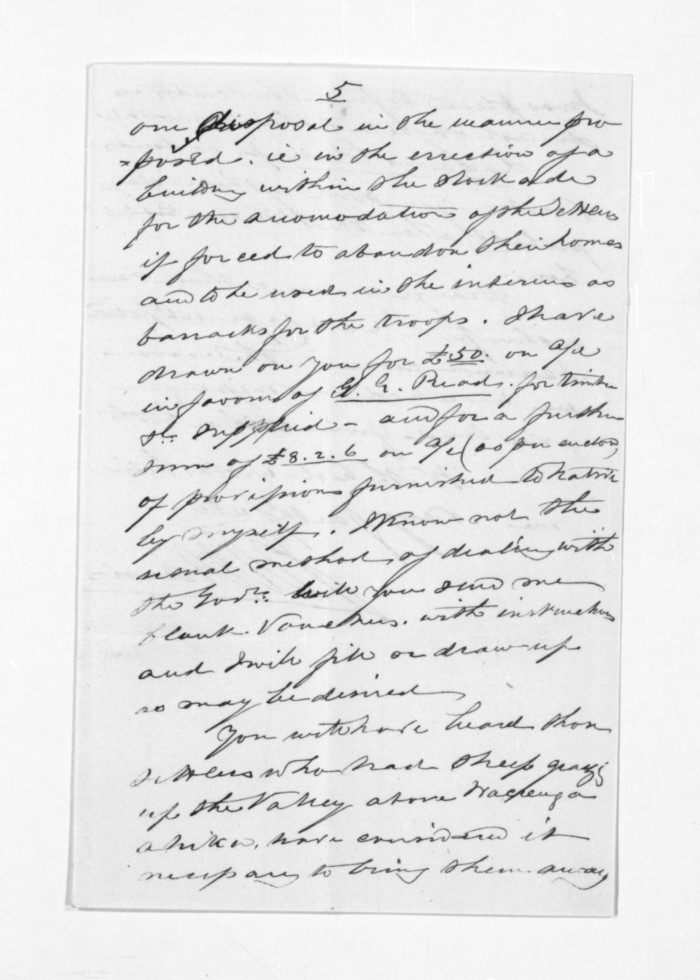 5
our disposal in the manner pro
=posed. ie in the errection of a
building within the stockade
for the acomodation of the settlers
if forced to abandon their homes
and to be used in the interim as
barracks for the troops. I have
drawn on you for £50. on a/c
in favour of G. E. Read. for timber
&c supplied - and for a further
sum of £8.2.6 on a/c (as per enclos)
of provisions furnished to natives
by myself. I know not the
usual method of dealing with
the Govt. Will you send me
blank Vouchers. with instructions
and I will fill or draw up
as may be desired
You will have heard that
settlers who had sheep grazg
up the Valley above Waerenga
ahika, have considered it
necessary to bring them away